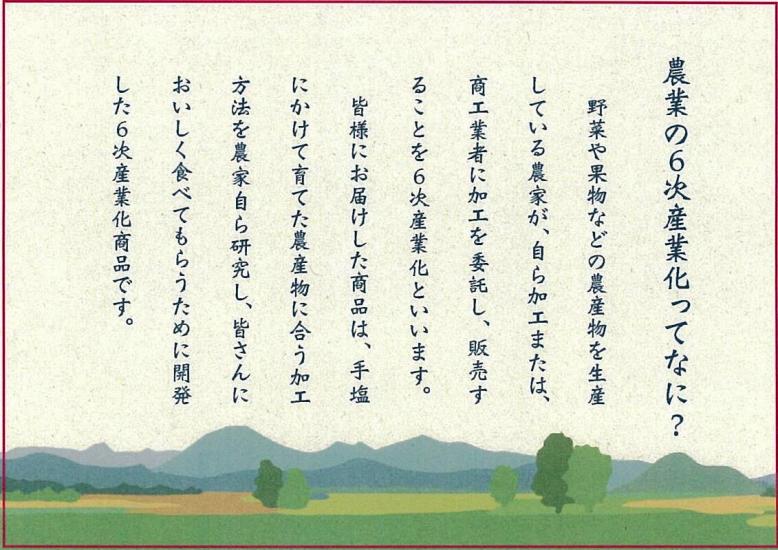 農業の６次産業化ってなに？
野菜や果物などの農産物を生産
している農家が、自ら加工または、
商工業者に加工を委託し、販売す
ることを６次産業化といいます。
皆様にお届けした商品は、手塩
にかけて育てた農産物に合う加工
方法を農家自ら研究し、皆さんに
おいしく食べてもらうために開発
した６次産業化商品です。